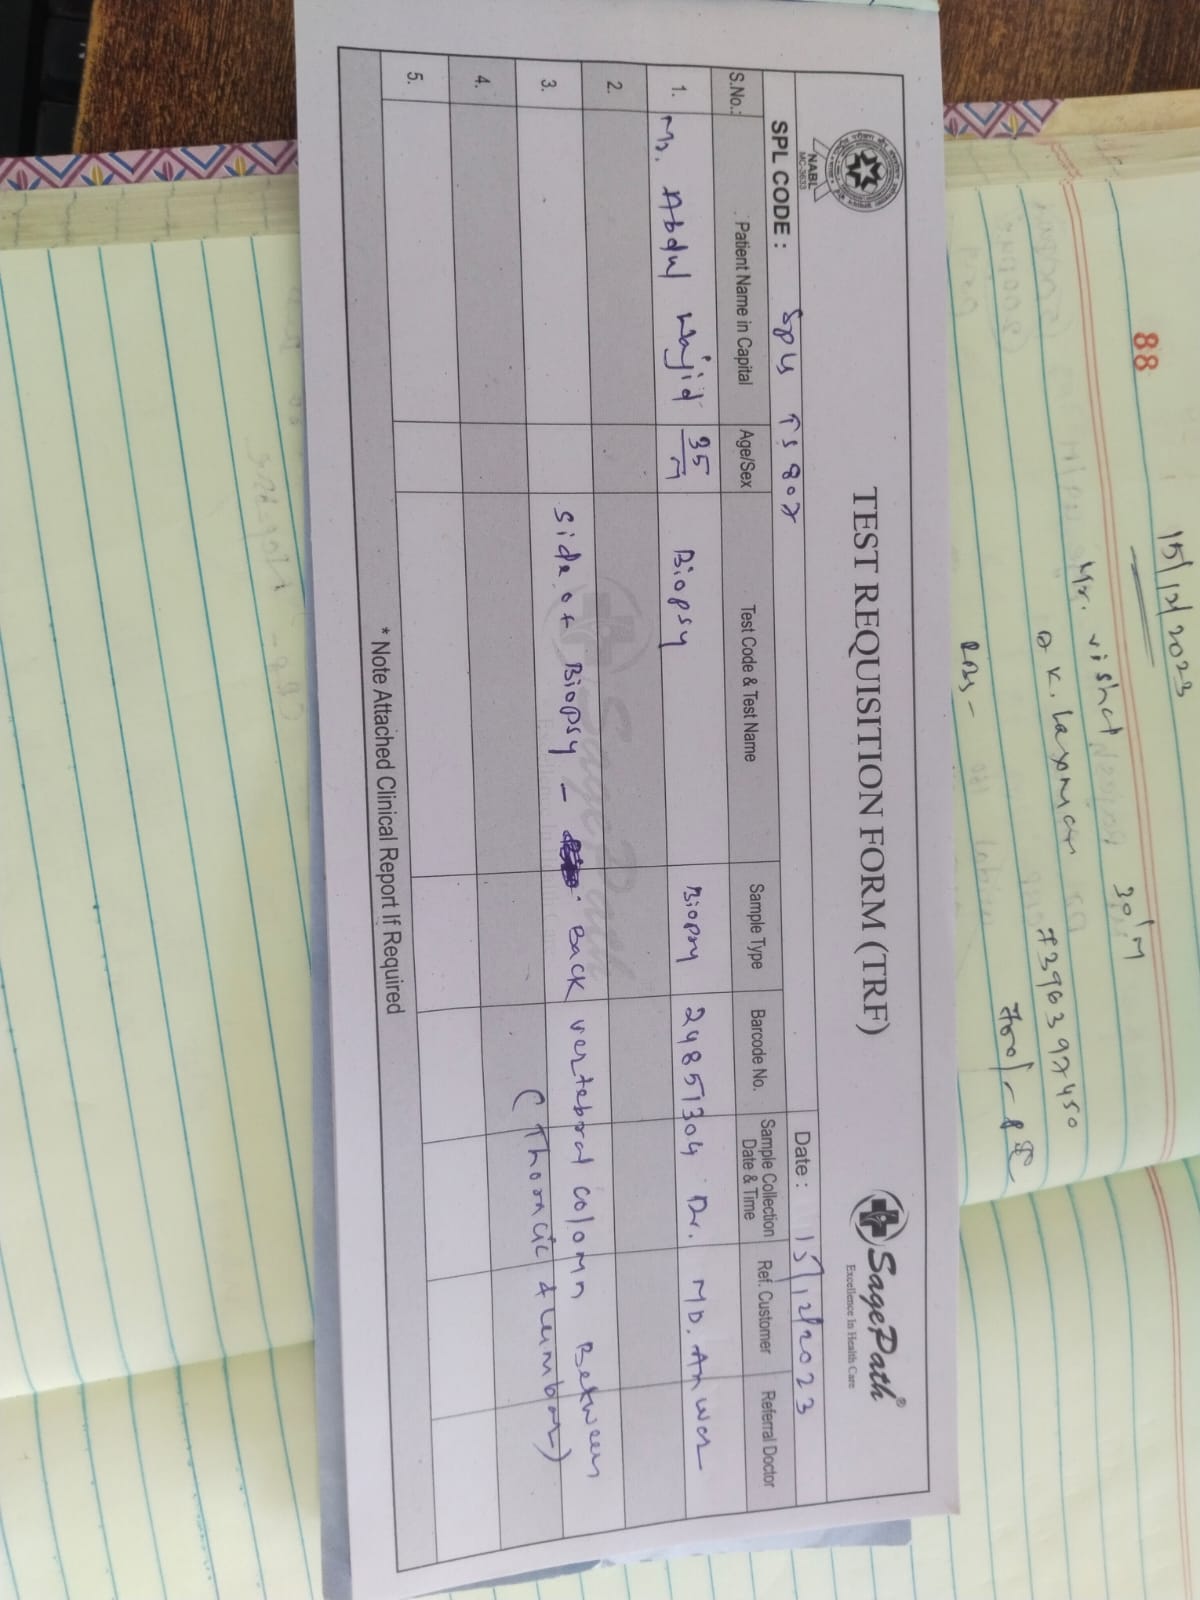 TEST REQUISITION FORM (TRF)
NABL
MC-3633
SagePath®
Excellence In Health Care
SPL CODE :
Date : 15/12/2023
S.No.: Patient Name in Capital Age/Sex Test Code & Test Name Sample Type Barcode No. Sample Collection Date & Time Ref. Customer Referral Doctor
1. Mr. Abdul Wajid 35/M Biopsy Biopsy 24851304 Dr. MD. Anwar
2.
3. Side of Biopsy - Back vertebral colomn Between
(Thoracic & Lumbar)
4.
5.
* Note Attached Clinical Report If Required
88
15/12/2023
Mr. vishal 30/M
D K. Laxman
RBS -